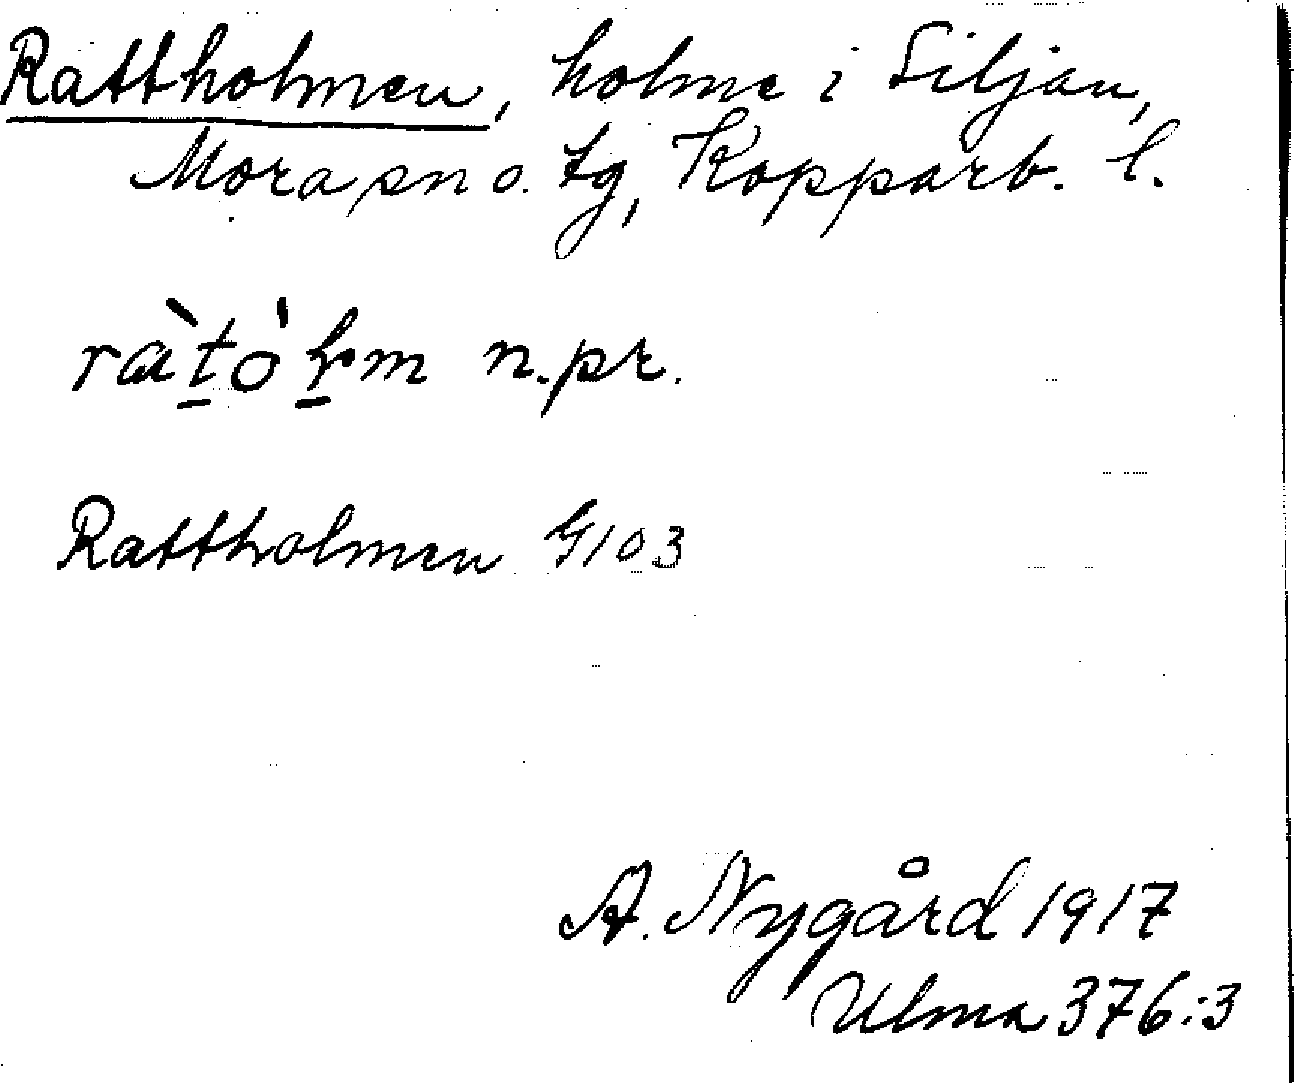 Rattholmen, holme i Siljan,
Mora sn o. tg, Kopparb. l.
n.pr.
Rattholmen G103
A. Nygård 1917
Ulma 376:3